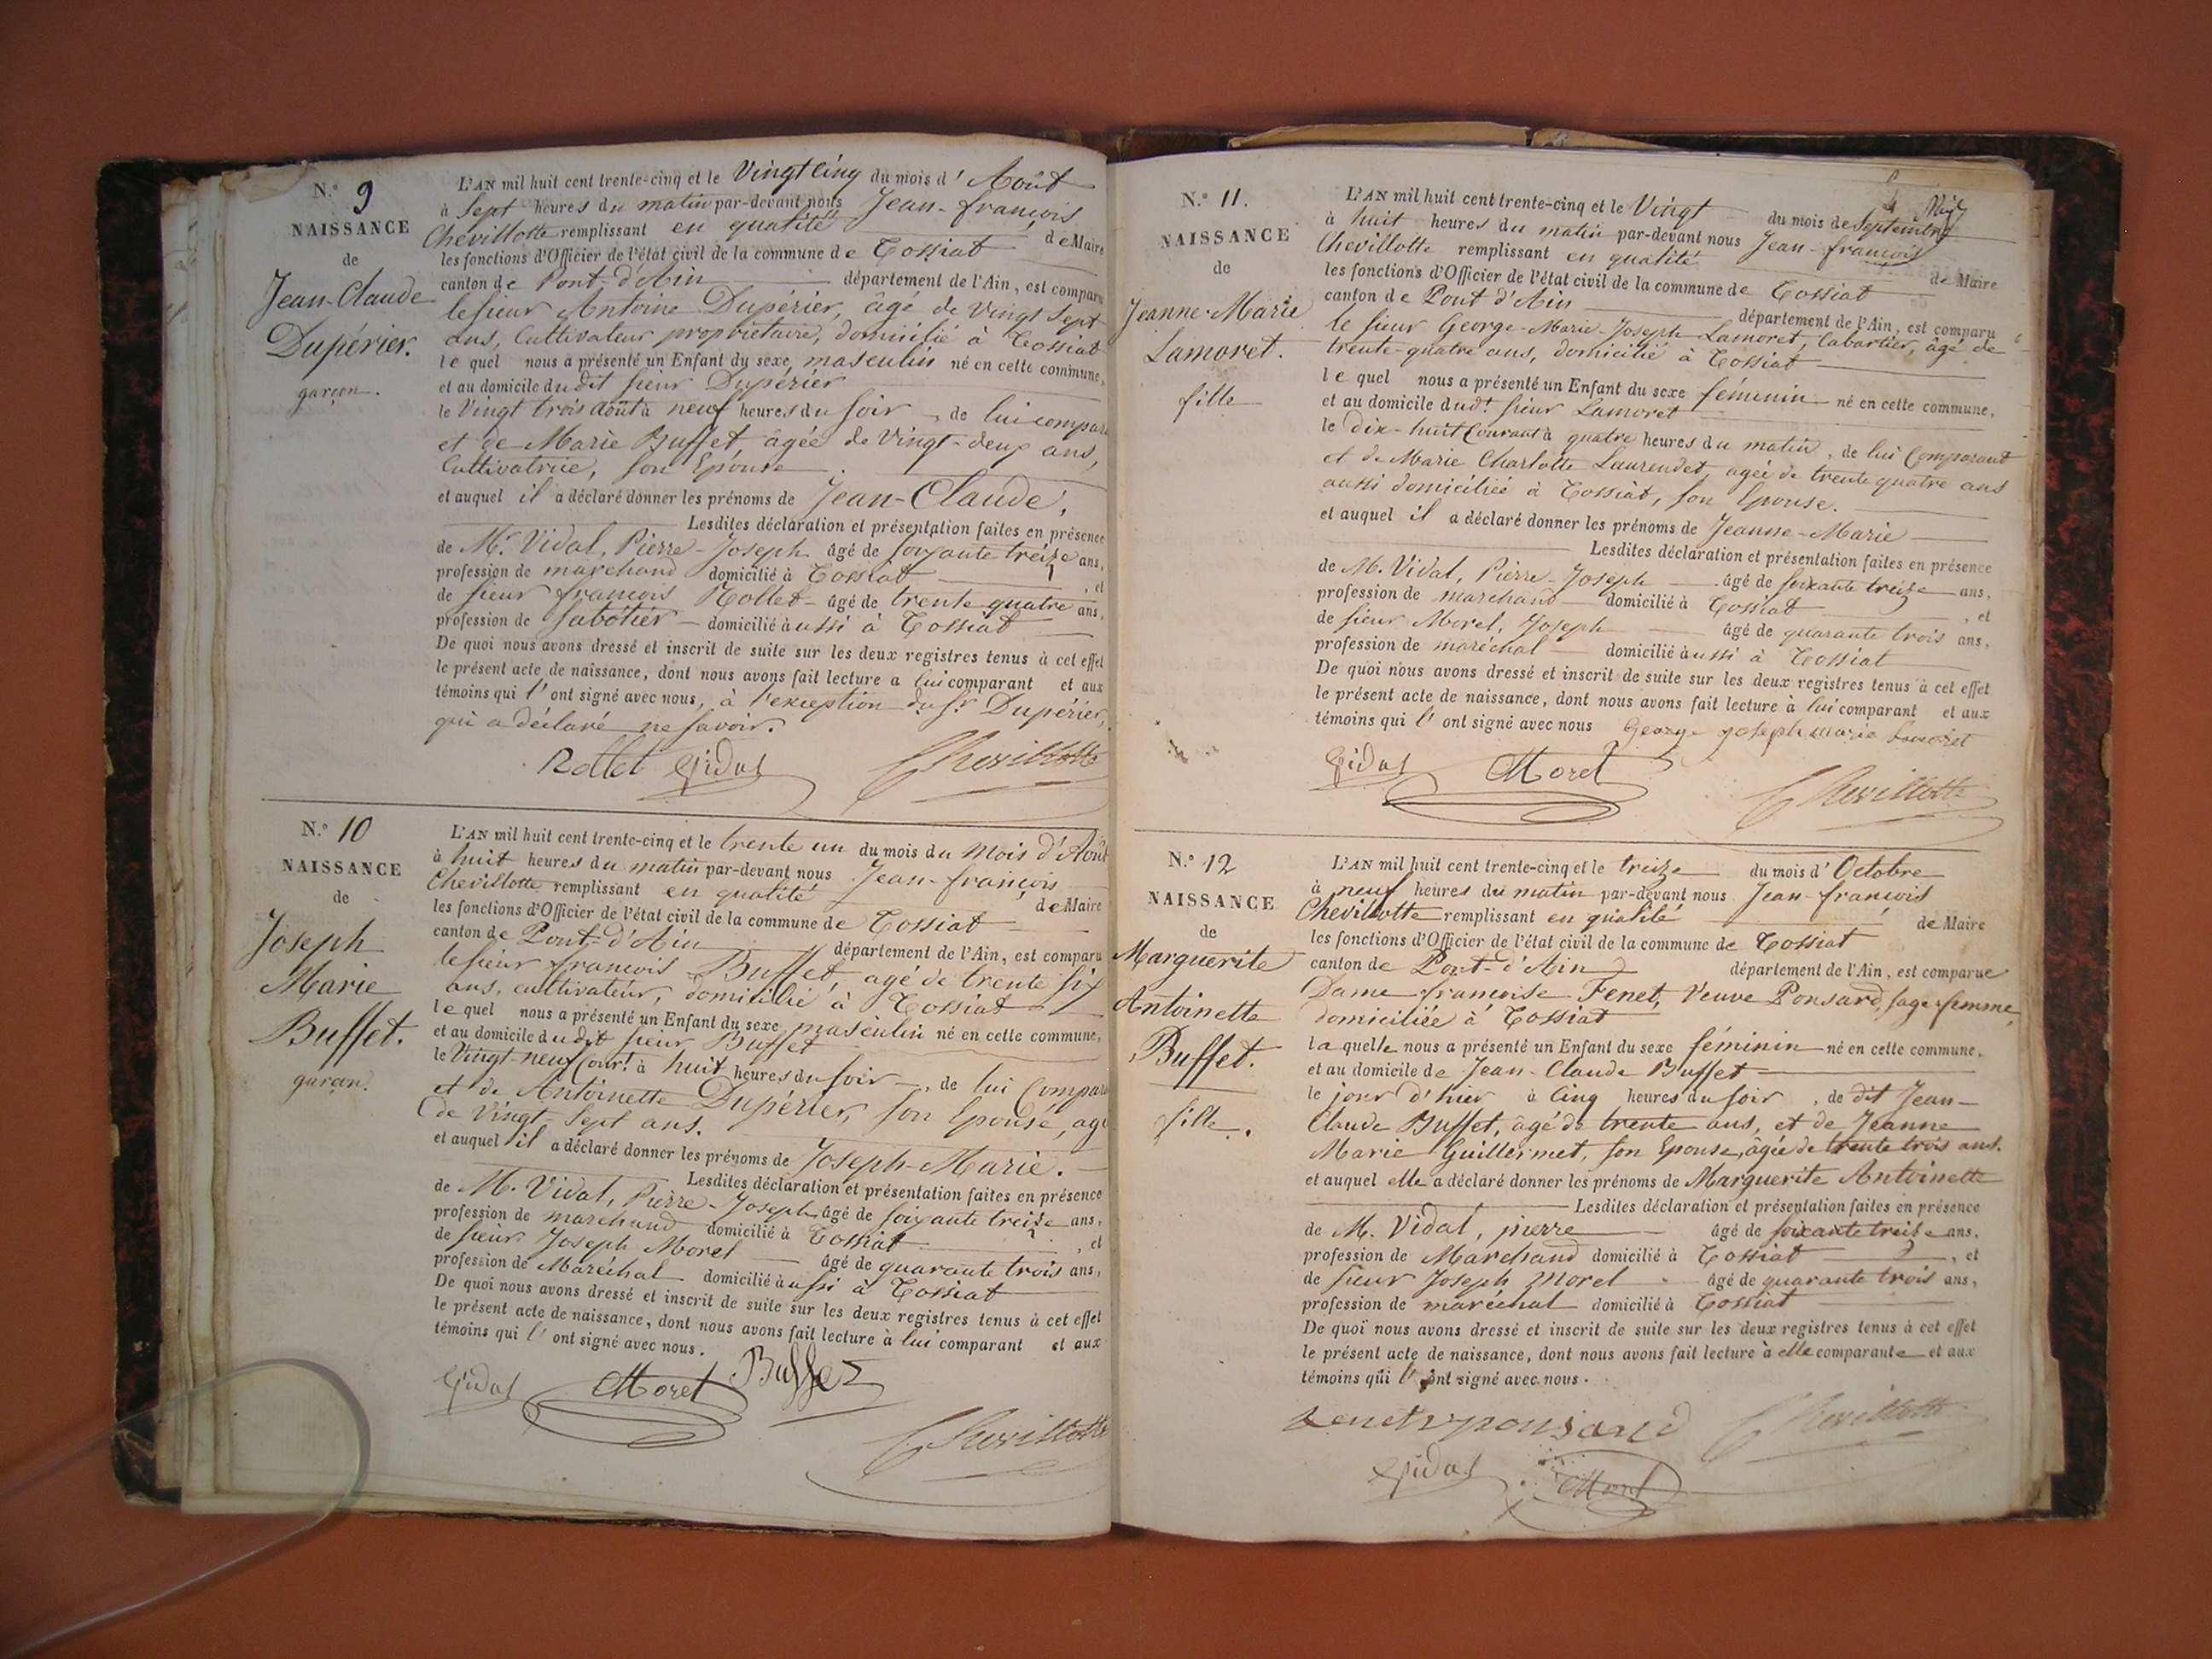 N.º 9
NAISSANCE
de
Jean-Claude
Dupérier.
garçon.
L'AN mil huit cent trente-cinq et le Vingt Cinq du mois d' Août
à Sept heures du matin par-devant nous Jean-françois
Chevillotte remplissant en qualité de Maire
les fonctions d'Officier de l'état civil de la commune de Tossiat
canton de Pont-d'Ain département de l'Ain, est comparu
le sieur Antoine Dupérier, âgé de Vingt Sept
ans, Cultivateur propriétaire, domicilié à Tossiat
le quel nous a présenté un Enfant du sexe masculin né en cette commune,
et au domicile dudit sieur Dupérier
le Vingt trois Août à neuf heures du soir, de lui compara
et de Marie Buffet âgée de Vingt-deux ans,
Cultivatrice, son Epouse.
et auquel il a déclaré donner les prénoms de Jean-Claude,
Lesdites déclaration et présentation faites en présence
de Mr. Vidal, Pierre-Joseph âgé de soixante treize ans,
profession de marchand domicilié à Tossiat, et
de sieur françois Rollet âgé de trente quatre ans,
profession de Sabotier domicilié aussi à Tossiat
De quoi nous avons dressé et inscrit de suite sur les deux registres tenus à cet effet
le présent acte de naissance, dont nous avons fait lecture a lui comparant et aux
témoins qui l'ont signé avec nous, à l'exception du Sr Dupérier,
qui a déclaré ne savoir.
Rollet Vidal Chevillotte
N.º 10
NAISSANCE
de
Joseph
Marie
Buffet.
garçon.
L'AN mil huit cent trente-cinq et le trente un du mois du Mois d'Août
à huit heures du matin par-devant nous Jean-françois
Chevillotte remplissant en qualité de Maire
les fonctions d'Officier de l'état civil de la commune de Tossiat
canton de Pont-d'Ain département de l'Ain, est comparu
le sieur françois Buffet, agé de trente six
ans, cultivateur, domicilié à Tossiat
le quel nous a présenté un Enfant du sexe masculin né en cette commune,
et au domicile dudit sieur Buffet
le Vingt-neuf Court à huit heures du soir, de lui Compara
et de Antoinette Dupérier, son Epouse, agé
de Vingt-Sept ans.
et auquel il a déclaré donner les prénoms de Joseph-Marie.
Lesdites déclaration et présentation faites en présence
de M. Vidal, Pierre-Joseph âgé de soixante treize ans,
profession de marchand domicilié à Tossiat, et
de sieur Joseph Morel âgé de quarante trois ans,
profession de Maréchal domicilié aussi à Tossiat
De quoi nous avons dressé et inscrit de suite sur les deux registres tenus à cet effet
le présent acte de naissance, dont nous avons fait lecture à lui comparant et aux
témoins qui l'ont signé avec nous.
Vidal Morel Buffet
Chevillotte
N.º 11.
NAISSANCE
de
Jeanne-Marie
Lamoret.
fille
L'AN mil huit cent trente-cinq et le Vingt du mois de Septembre
à huit heures du matin par-devant nous Jean-françois
Chevillotte remplissant en qualité de Maire
les fonctions d'Officier de l'état civil de la commune de Tossiat
canton de Pont d'Ain département de l'Ain, est comparu
le sieur George-Marie-Joseph Lamoret, Cabartier, âgé de
trente-quatre ans, domicilié à Tossiat
le quel nous a présenté un Enfant du sexe féminin né en cette commune,
et au domicile dudt sieur Lamoret
le dix-huit Courant à quatre heures du matin, de lui Comparant
et de Marie Charlotte Laurendet, agée de trente quatre ans
aussi domiciliée à Tossiat, son Epouse.
et auquel il a déclaré donner les prénoms de Jeanne-Marie
Lesdites déclaration et présentation faites en présence
de M. Vidal, Pierre-Joseph âgé de soixante treize ans,
profession de marchand domicilié à Tossiat, et
de sieur Morel, Joseph âgé de quarante trois ans,
profession de maréchal domicilié aussi à Tossiat
De quoi nous avons dressé et inscrit de suite sur les deux registres tenus à cet effet
le présent acte de naissance, dont nous avons fait lecture à lui comparant et aux
témoins qui l'ont signé avec nous George joseph marie Lamoret
Vidal Morel
Chevillotte
N.º 12
NAISSANCE
de
Marguerite
Antoinette
Buffet.
fille.
L'AN mil huit cent trente-cinq et le treize du mois d' Octobre
à neuf heures du matin par-devant nous Jean-françois
Chevillotte remplissant en qualité de Maire
les fonctions d'Officier de l'état civil de la commune de Tossiat
canton de Pont-d'Ain département de l'Ain, est comparue
Dame françoise Fenet, Veuve Ponsard, sage-femme,
domiciliée à Tossiat
la quelle nous a présenté un Enfant du sexe féminin né en cette commune,
et au domicile de Jean-Claude Buffet
le jour d'hier à Cinq heures du soir, de dit Jean-
Claude Buffet, âgé de trente ans, et de Jeanne
Marie Guillermet, son Epouse, âgée de trente trois ans.
et auquel elle a déclaré donner les prénoms de Marguerite Antoinette
Lesdites déclaration et présentation faites en présence
de M. Vidal, pierre âgé de soixante treize ans,
profession de Marchand domicilié à Tossiat, et
de sieur Joseph Morel âgé de quarante trois ans,
profession de maréchal domicilié à Tossiat
De quoi nous avons dressé et inscrit de suite sur les deux registres tenus à cet effet
le présent acte de naissance, dont nous avons fait lecture à elle comparante et aux
témoins qui l'ont signé avec nous.
fenet v ponsard Chevillotte
Vidal Morel